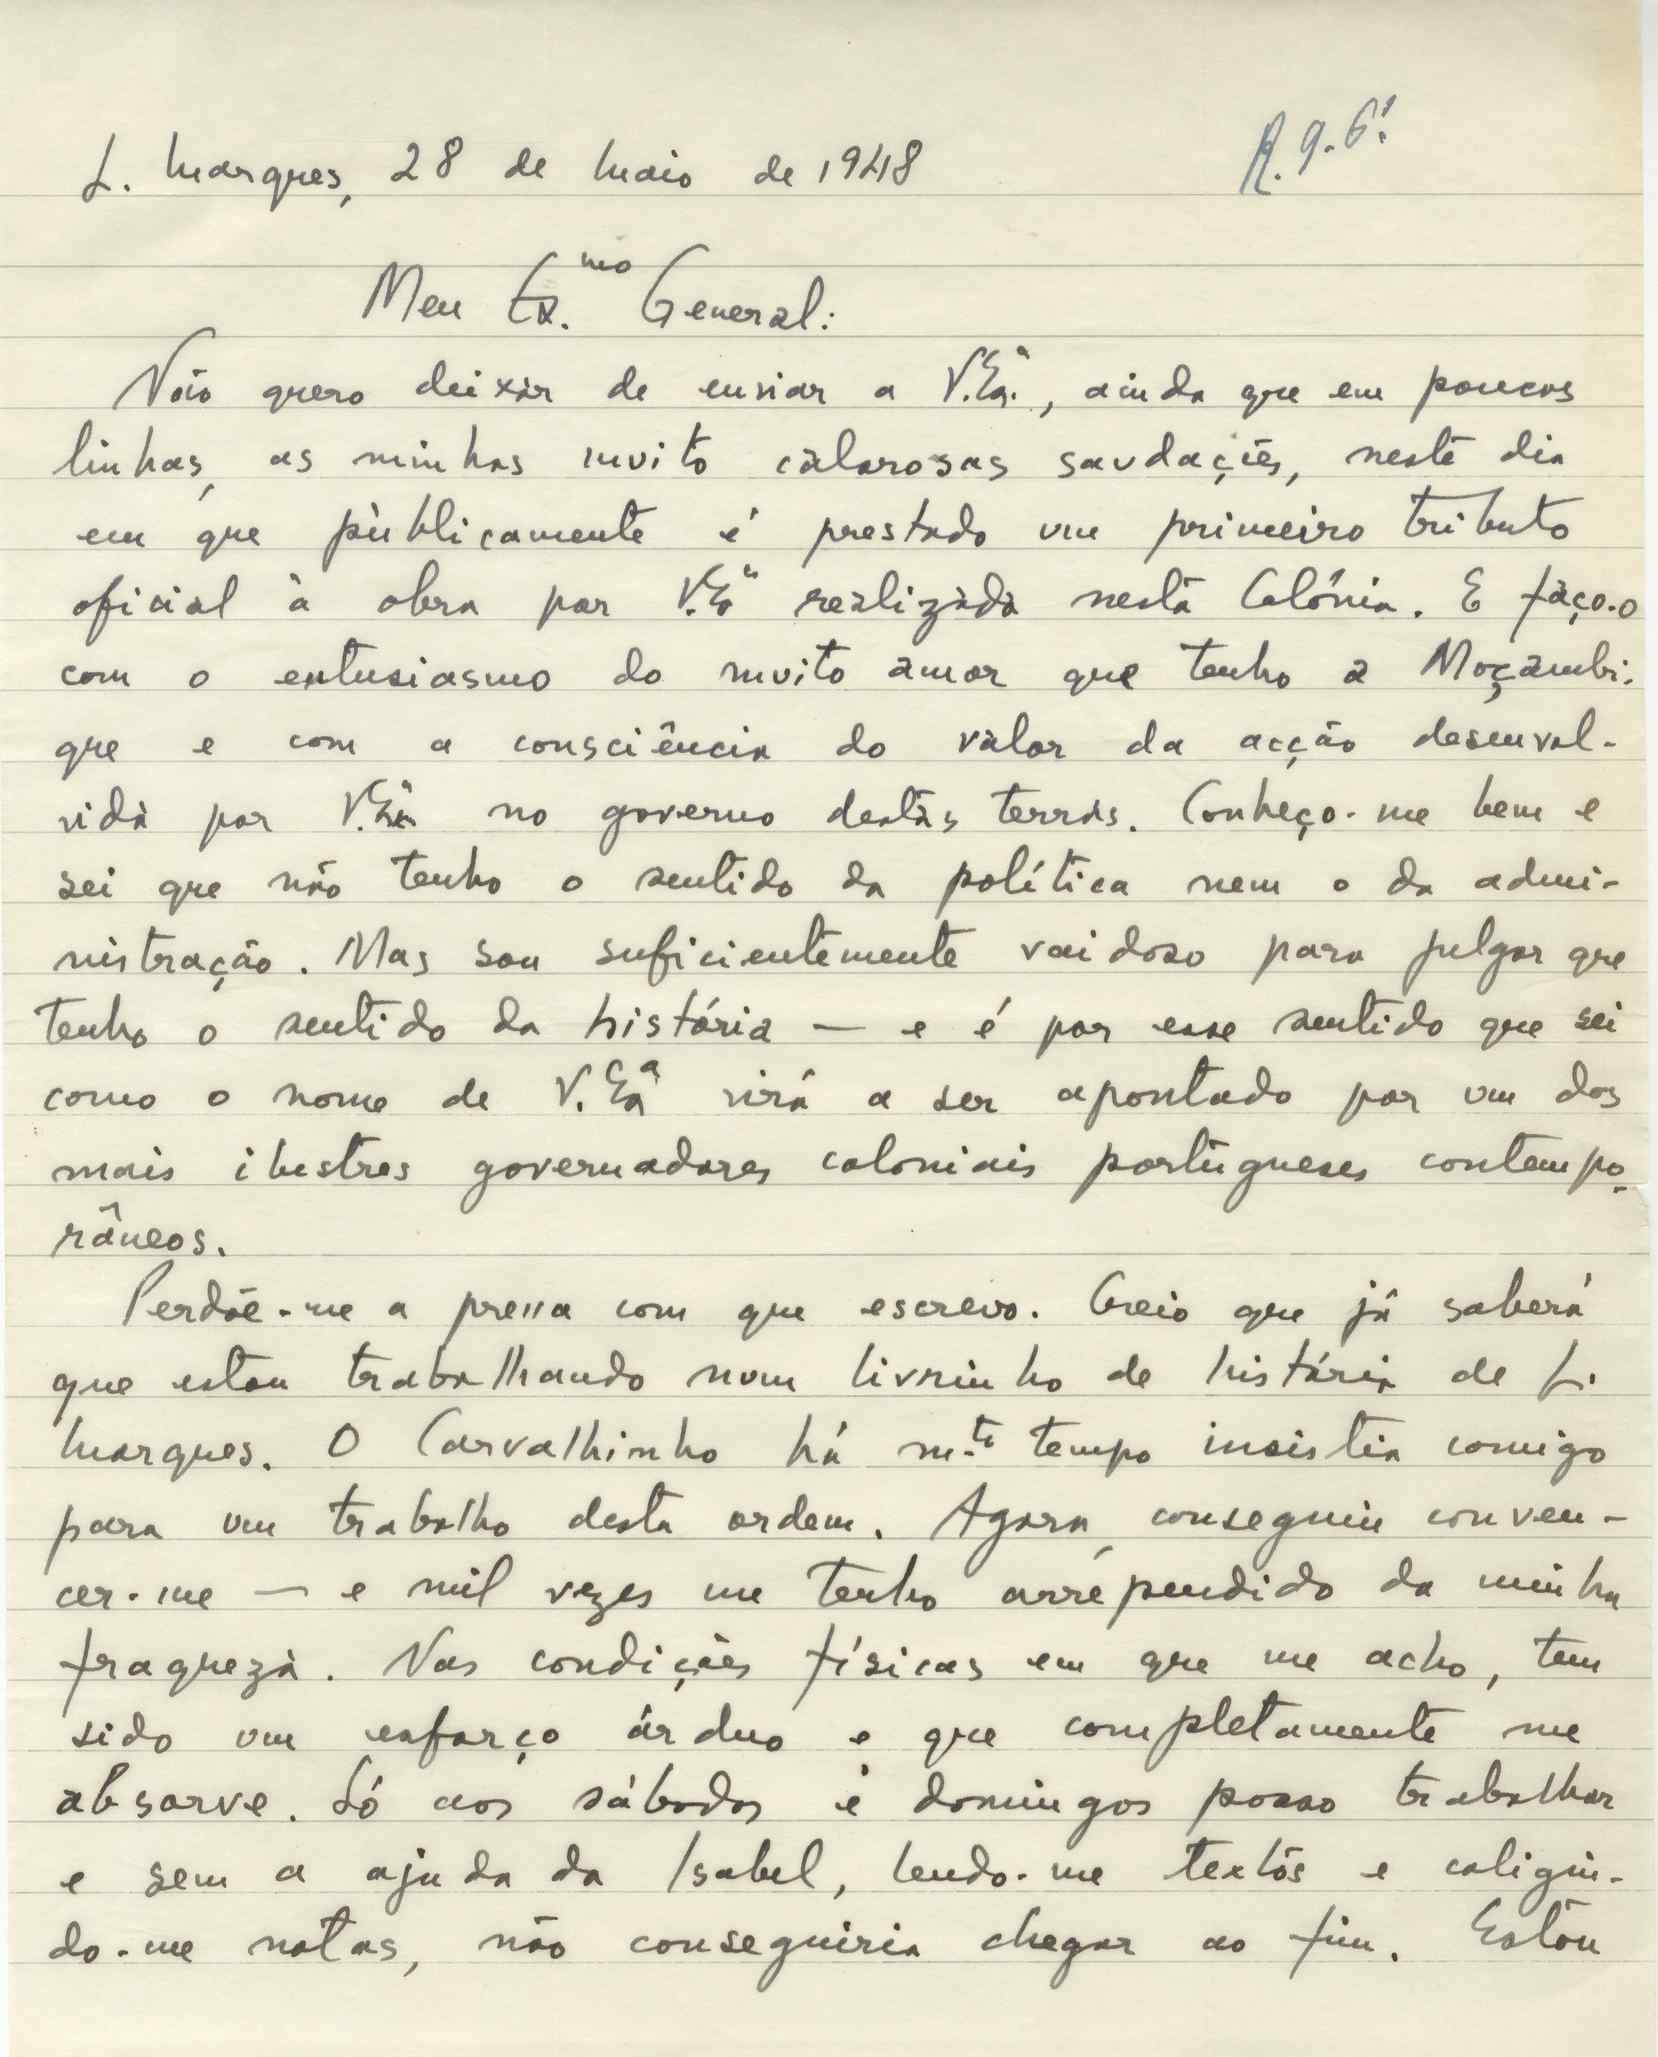 L. Marques, 28 de Maio de 1948
R. 9.6.
Meu Ex.mo General:
Não quero deixar de enviar a V.Exª., ainda que em poucas
linhas, as minhas muito calorosas saudações, neste dia
em que pùblicamente é prestado um primeiro tributo
oficial à obra por V.Exª realizada nesta Colónia. E faço-o
com o entusiasmo do muito amor que tenho a Moçambi-
que e com a consciência do valor da acção desenvol-
vida por V.Exª no governo destas terras. Conheço-me bem e
sei que não tenho o sentido da política nem o da admi-
nistração. Mas sou suficientemente vaidoso para julgar que
tenho o sentido da história — e é por esse sentido que sei
como o nome de V.Exª virá a ser apontado por um dos
mais ilustres governadores coloniais portugueses contempo-
râneos.
Perdõe-me a pressa com que escrevo. Creio que já saberá
que estou trabalhando num livrinho de história de L.
Marques. O Carvalhinho há m.to tempo insistia comigo
para um trabalho desta ordem. Agora, conseguiu conven-
cer-me — e mil vezes me tenho arrependido da minha
fraqueza. Nas condições físicas em que me acho, tem
sido um esforço árduo e que completamente me
absorve. Só aos sábados e domingos posso trabalhar
e sem a ajuda da Isabel, lendo-me textos e coligin-
do-me notas, não conseguiria chegar ao fim. Estou